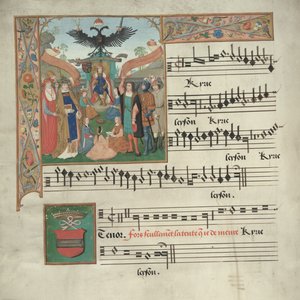 Kyrie
leyson
Kyrie
leyson Kyrie
leyson.
Tenor. Fors seullement lattente que de meure Kyrie
leyson.